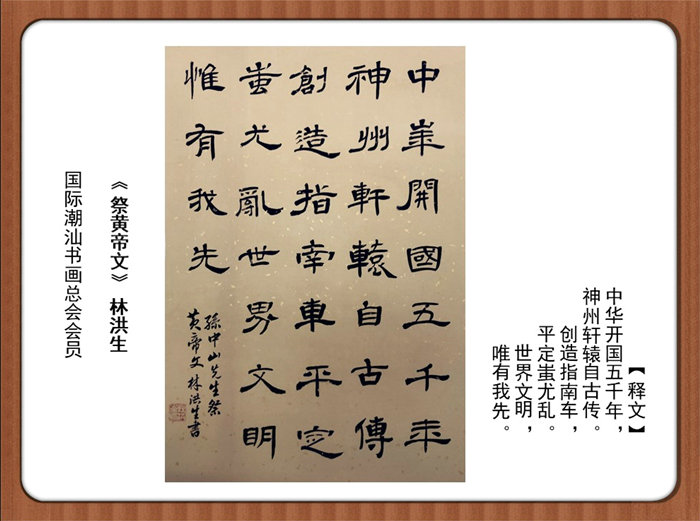 【释文】
中华开国五千年，
神州轩辕自古传。
创造指南车，
平定蚩尤乱。
世界文明，
唯有我先。
中崋開國五千年
神州軒轅自古傳
創造指南車平定
蚩尤亂世界文明
惟有我先
孫中山先生祭
黄帝文 林洪生書
《祭黄帝文》 林洪生
国际潮汕书画总会会员